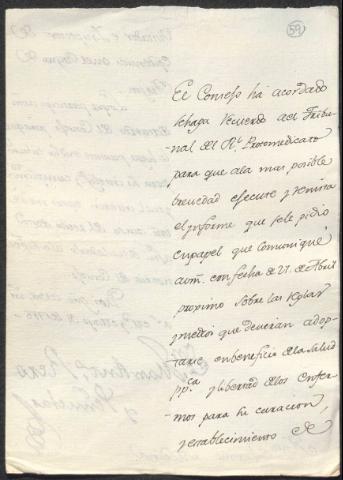 59
El Consejo há acordado
sehaga recuerdo al Tribu-
nal del Rl. Protomedicato
para que ala mas posible
brevedad execute y remita
el informe que se le pidio
en papel que comuniqué
con fecha de 21. de Abril
proximo sobre las reglas
y medios que deverian adop-
tarse en beneficio de la salud
ppca. y libertad de los enfer-
mos para su curacion,
y establecimiento de